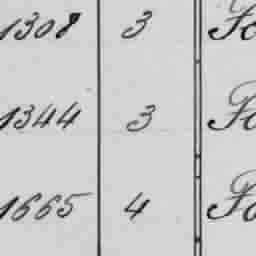 1308 3 Fo
1344 3 Fo
1665 4 Fo